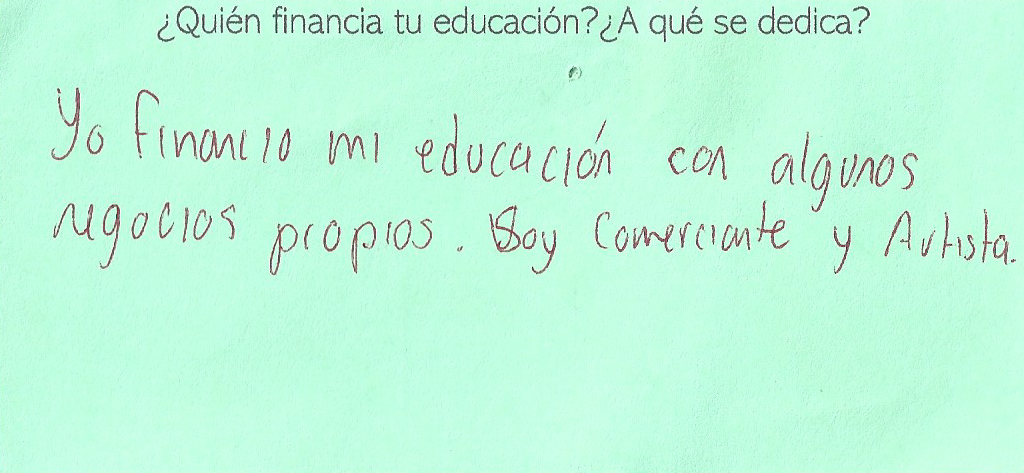 ¿Quién financia tu educación?¿A qué se dedica?
Yo financio mi educación con algunos
negocios propios. Soy Comerciante y Artista.